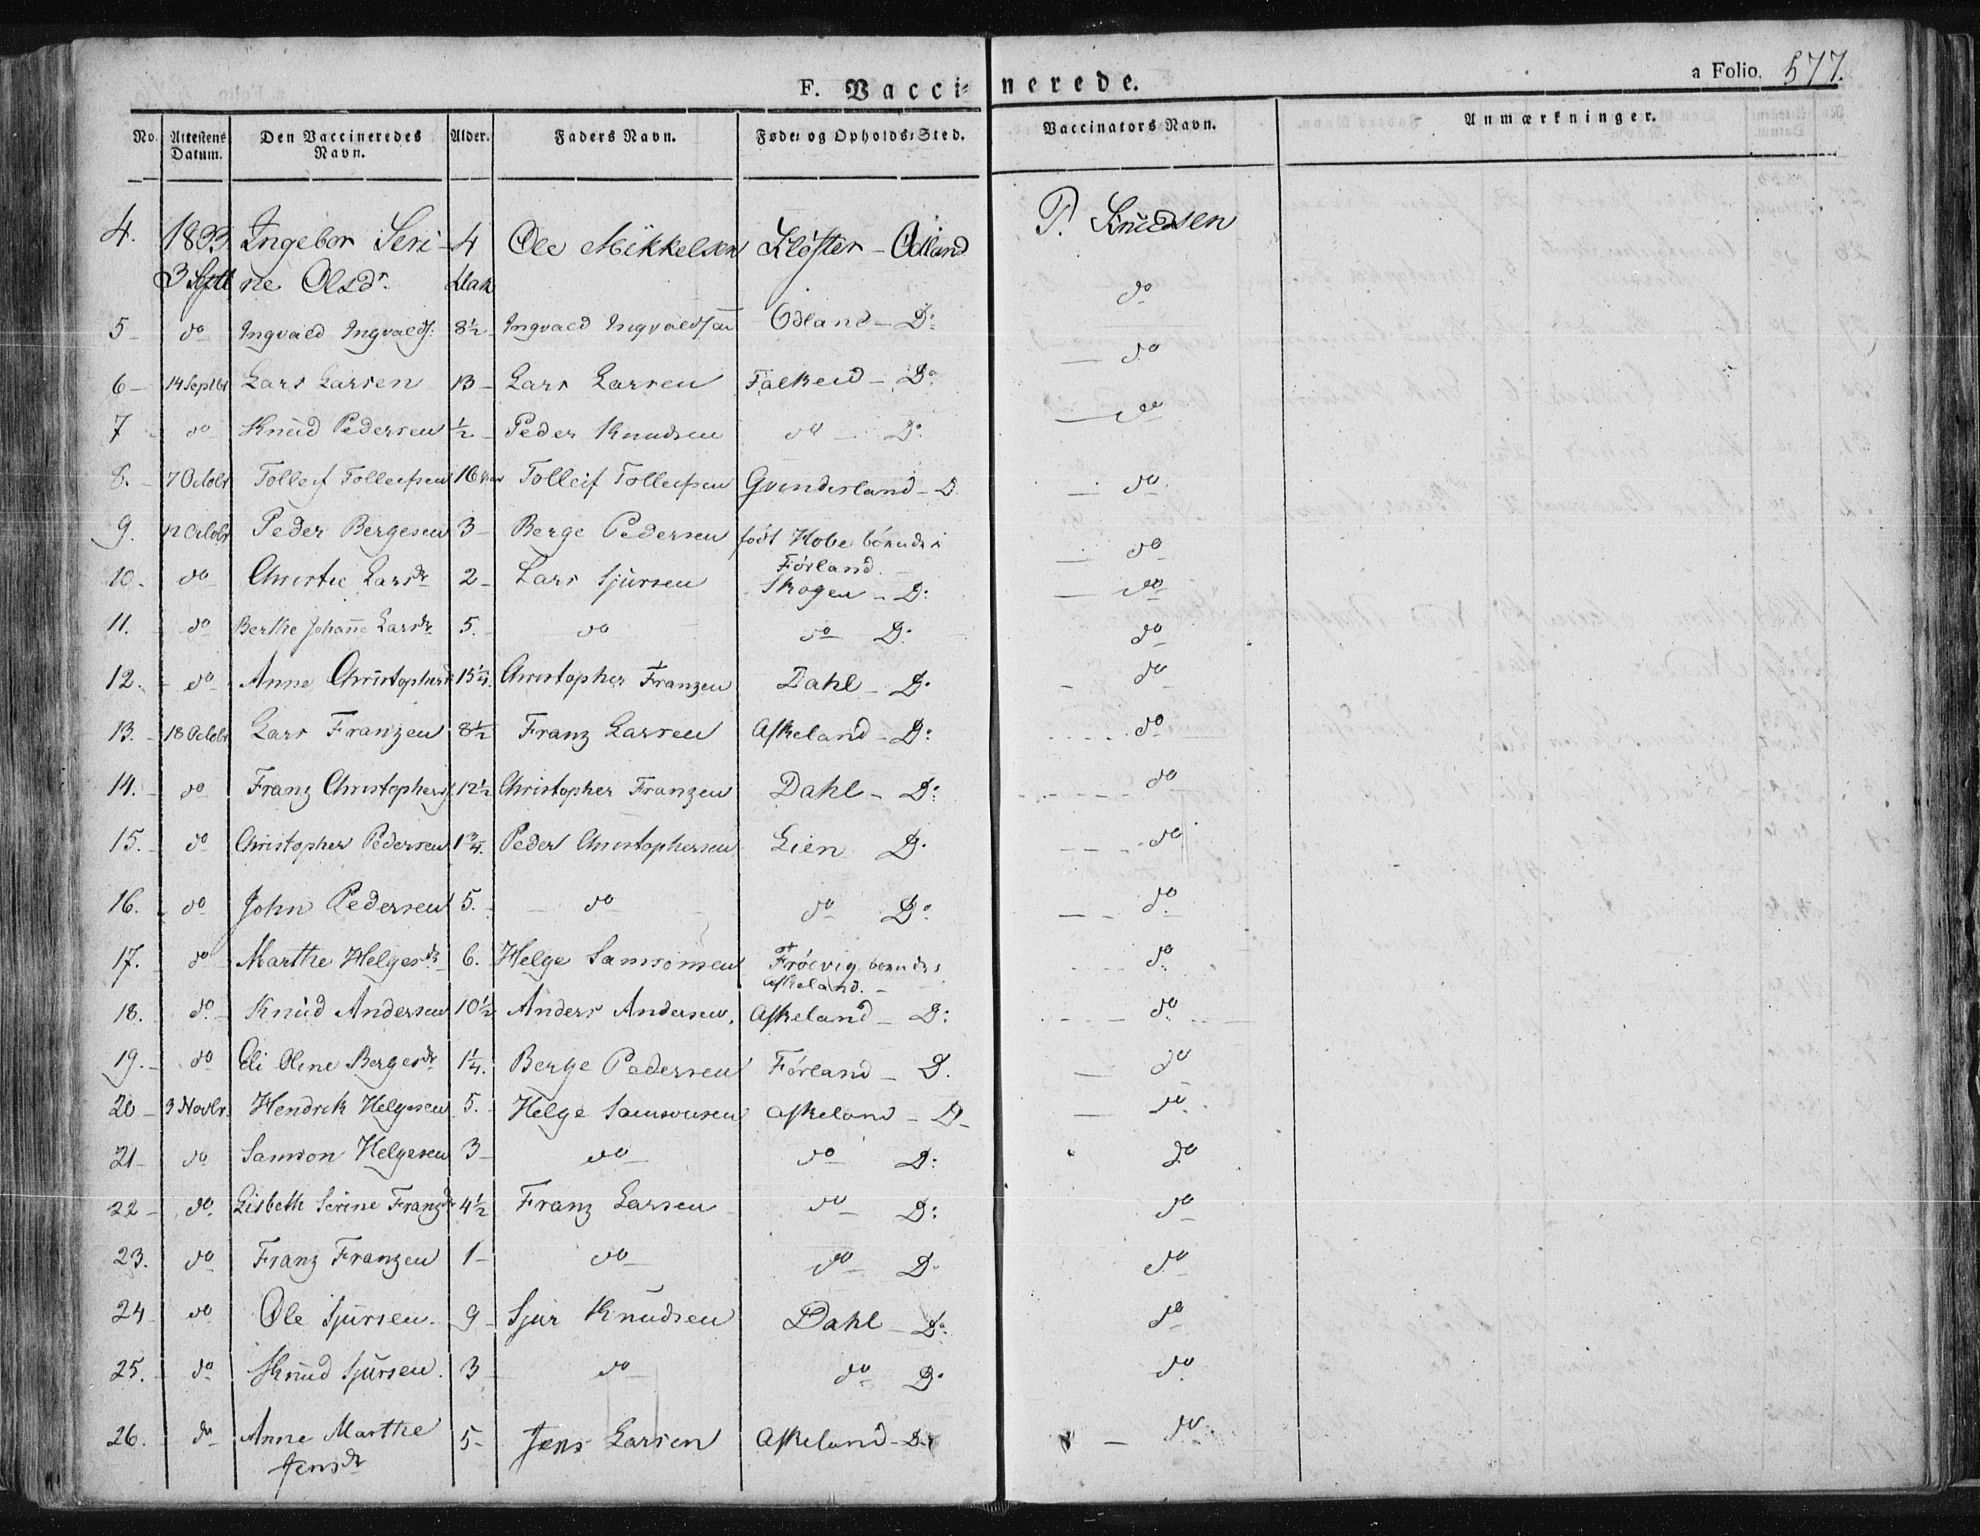 F. Vaccinerede.
a Folio. 577.
No. Attestens Datum. Den Vaccineredes Navn. Alder. Faders Navn. Føde- og Opholds-Sted. Vaccinators Navn. Anmærkninger.
4. 1833 Ingebor Seri- 4 Ole Mikkelsen Kloster - Ödland P. Knudsen
3 Septb ne Olsdr. do
5 do Ingvald Ingvalds. 8½ Ingvald Ingvaldsen Ödland - Do do
6 - 14 Septbr Lars Larsen 13 - Lars Larsen Falkeid - Do do
7 do Knud Pedersen ½ - Peder Knudsen do - Do
8. - 7 Octobr Tolleif Tolleifsen 16 Tolleif Tolleifsen Gunderland - D. do
9. 12 Octobr Peder Bergesen 3 - Berge Pedersen födt Hobe boende i Förland. do
10. do Christie Larsdr 2 - Lars Sjursen Skogen - D: do
11. do Berthe Johanne Larsdr. 5. do do D: do
12. - do Anne Christophersd 15¼. Christopher Franzen Dahl - D. do
13. - 18 Octobr Lars Franzen 8½ Franz Larsen Askeland - D: do
14. - do Franz Christophers. 12½ Christopher Franzen Dahl - D: do
15. do Christopher Pedersen 1¾. Peder Christophersen Lien D. do
16. do John Pedersen 5. do do Do do
17. - do Marthe Helgesdr 6. Helge Samsonsen Fröevig boende i Askeland. - do
18. do Knud Andersen 10½ Anders Andersen. Askeland - D: do
19. - do Eli Oline Bergesdr 1¼. Berge Pedersen Förland - D. do
20 - 3 Novbr. Hendrik Helgesen 5. - Helge Samsonsen Askeland - D - do
21 - do Samson Helgesen 3 - do do D: do
22 - do Lisbeth Serine Franzdr 4½ Franz Larsen do D: do
23. do Franz Franzen 1 - do do D. do
24 do Ole Sjursen. 9 - Sjur Knudsen Dahl - Do do
25. do Knud Sjursen. 3 do do Do do
26. do Anne Marthe 5 - Jens Larsen Askeland - D. do
Jensdr